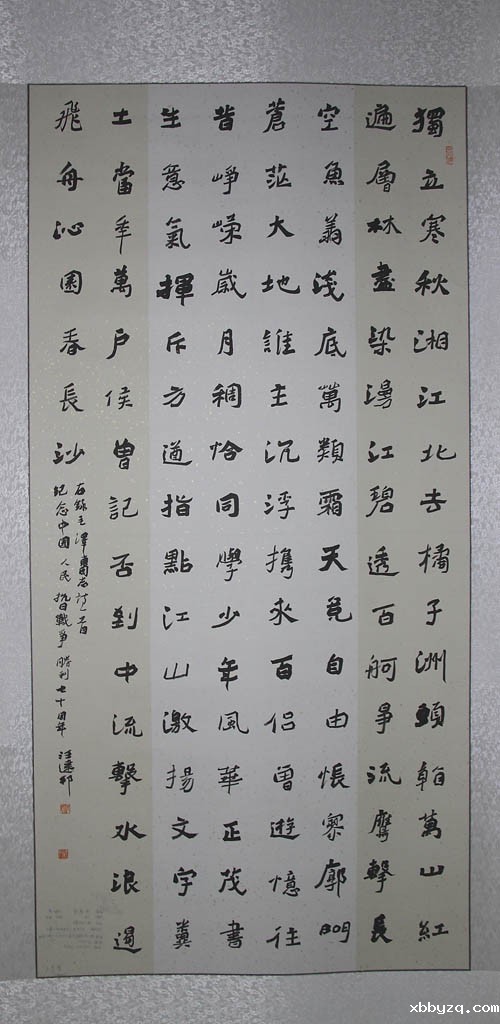 獨立寒秋湘江北去橘子洲頭看萬山紅
遍層林盡染漫江碧透百舸爭流鷹擊長
空魚翔淺底萬類霜天竞自由悵寥廓問
蒼茫大地誰主沉浮携來百侣曾遊憶往
昔崢嶸歲月稠恰同學少年風華正茂書
生意氣揮斥方遒指點江山激揚文字糞
土當年萬户侯曾記否到中流擊水浪遏
飛舟沁園春長沙
右錄毛澤東同志詞一首
紀念中國人民抗日戰爭勝利七十周年
xbbyzq.com